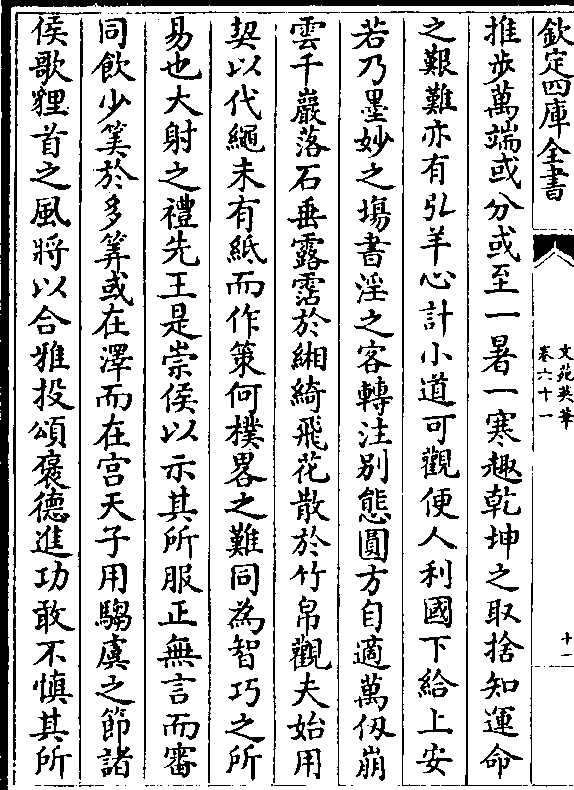 欽定四庫全書
文苑英華
卷六十一
十一
推步萬端或分或至一暑一寒趣乾坤之取捨知運命
之艱難亦有弘羊心計小道可觀便人利國下給上安
若乃墨妙之塲書淫之客轉注别態圓方自適萬仭崩
雲千巖落石垂露霑於緗綺飛花散於竹帛觀夫始用
契以代繩未有紙而作策何樸畧之難同為智巧之所
易也大射之禮先王是崇侯以示其所服正無言而審
同飲少筭於多筭或在澤而在宫天子用騶虞之節諸
侯歌貍首之風將以合雅投頌褒德進功敢不慎其所